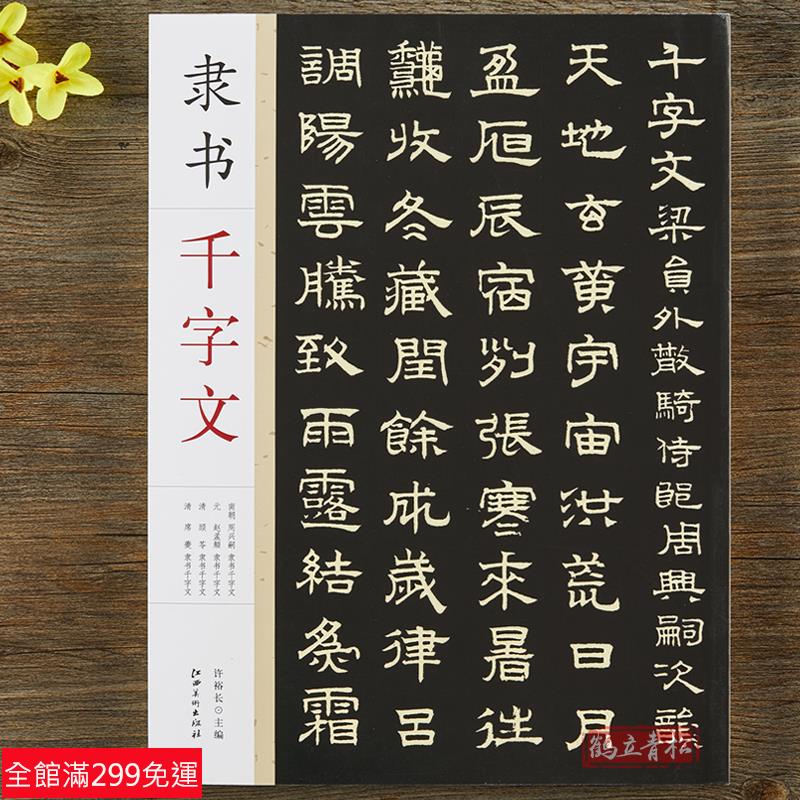 隶书
千字文
南朝 周兴嗣 隶书千字文
元 赵孟頫 隶书千字文
清 顾苓 隶书千字文
清 席夔 隶书千字文
许裕长⊙主编
江西美術出版社
千字文梁員外散騎侍郎周興嗣次韻
天地玄黄宇宙洪荒日月
盈昃辰宿列張寒來暑往
收冬藏閏餘成歲律呂
調陽雲騰致雨露結為霜
鶴立青松
全館滿299免運